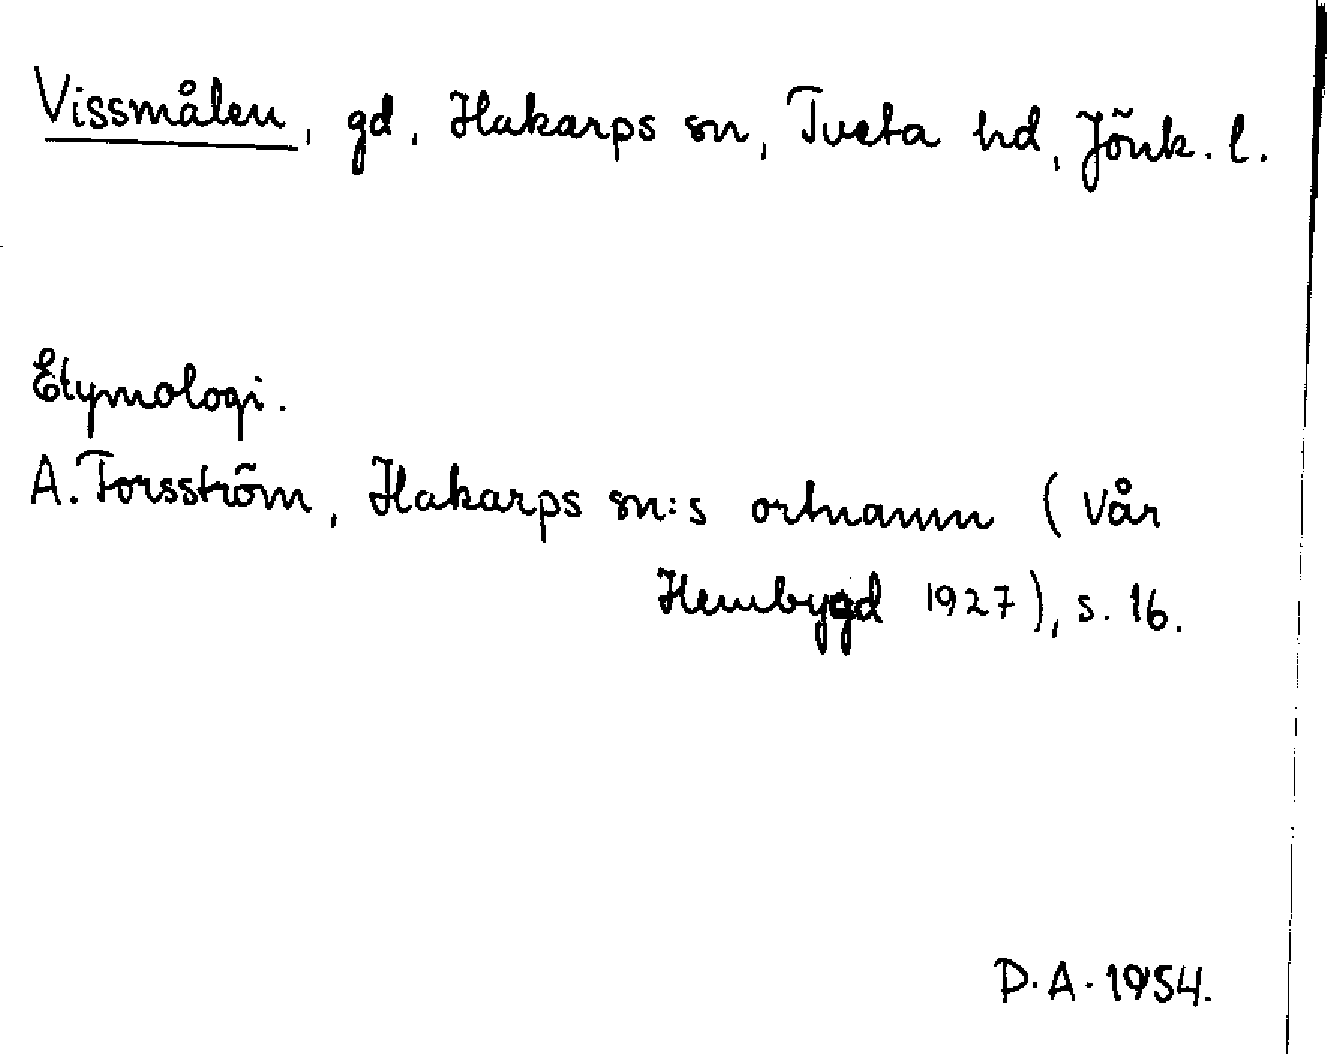 Vissmålen, gd, Hakarps sn, Tveta hd, Jönk. l.
Etymologi.
A. Forsström, Hakarps sn:s ortnamn (Vår
Hembygd 1927), s. 16.
D.A. 1954.